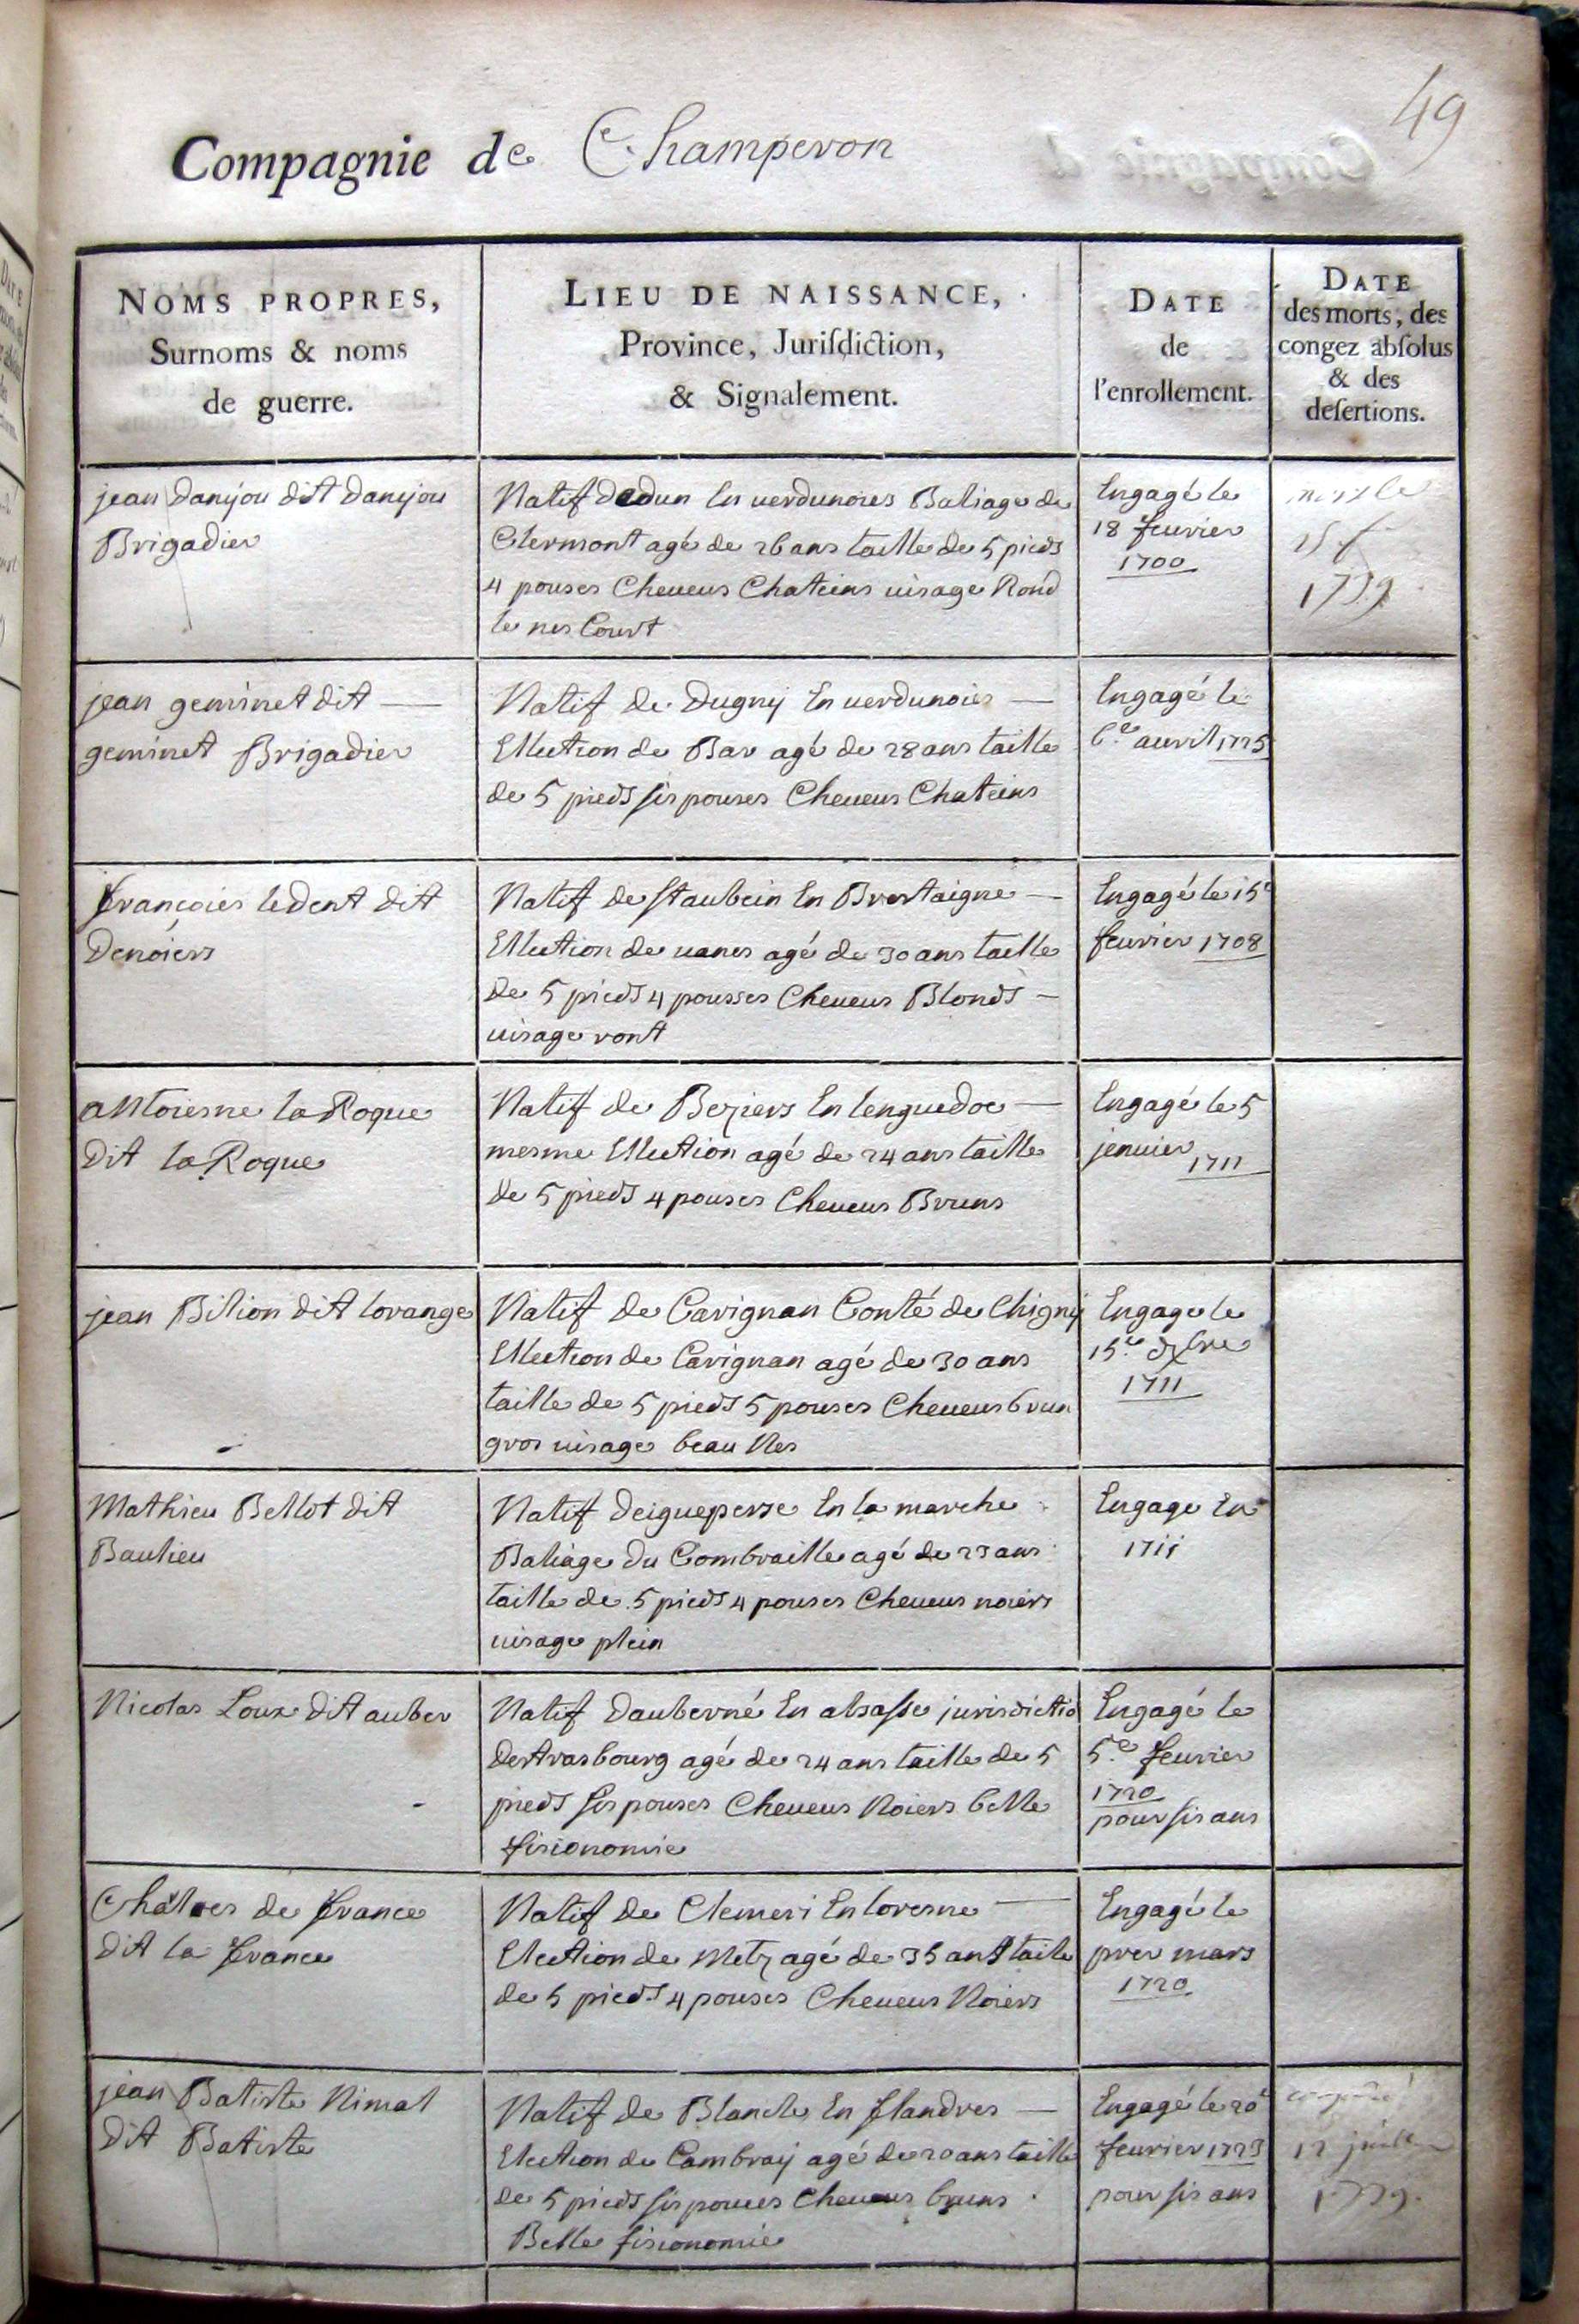 49
Compagnie de Champeron
NOMS PROPRES,
Surnoms & noms
de guerre.
LIEU DE NAISSANCE,
Province, Jurisdiction,
& Signalement.
DATE
de
l'enrollement.
DATE
des morts, des
congez absolus
& des
desertions.
jean Danjou dit Danjou
Brigadier
Natif Dedun En verdunoies Baliage de
Clermont agé de 26 ans taille de 5 pieds
4 pouses Cheueus Chateins uisage Rond
le nes Court
Engagé le
18 feurier
1700
mort le
1739
jean geminet dit —
geminet Brigadier
Natif de Dugny En uerdunoies —
Ellection de Bar agé de 28 ans taille
de 5 pieds sis pouses Cheueus Chateins
Engagé le
6.e auril 1725
francoies ledent dit
Denoiers
Natif de staubein En Brestaigne —
Ellection de uanes agé de 30 ans taille
de 5 pieds 4 pousses Cheueus Blonds —
uisage ront
Engagé le 15e
feurier 1708
antoiesne la Roque
dit la Roque
Natif de Beziers En lenguedoc —
mesme Ellection agé de 24 ans taille
de 5 pieds 4 pouses Cheueus Bruns
Engagé le 5
jenuier
1711
jean Bilion dit lorange
Natif de Carignan Conté de Chigny
Ellection de Carignan agé de 30 ans
taille de 5 pieds 5 pouses Cheueus brun
gros uisage beau Nes
Engage le
15.e xbre
1711
Mathieu Bellot dit
Baulieu
Natif deigueperse En la marche
Baliage du Combraille agé de 23 ans
taille de 5 pieds 4 pouses Cheueus noiers
uisage plein
Engage En
1711
Nicolas Loux dit auber
Natif dauberné En alsasse jurisdictio
destrasbourg agé de 24 ans taille de 5
pieds sis pouses Cheueus Noiers belle
fisionomie
Engagé le
5.e feurier
1720
pour sis ans
Challes de france
dit la france
Natif de Clemeri En loresne —
Election de Metz agé de 35 ans taile
de 5 pieds 4 pouses Cheueus Noiers
Engagé le
prer mars
1720
jean Batiste Nimal
dit Batiste
Natif de Blancle En flandres —
Election de Cambray agé de 20 ans taille
de 5 pieds sis pouces Cheueus bruns
Belle fisionomie
Engagé le 20e
feurier 1723
pour sis ans
congedié
12 juillet
1739.